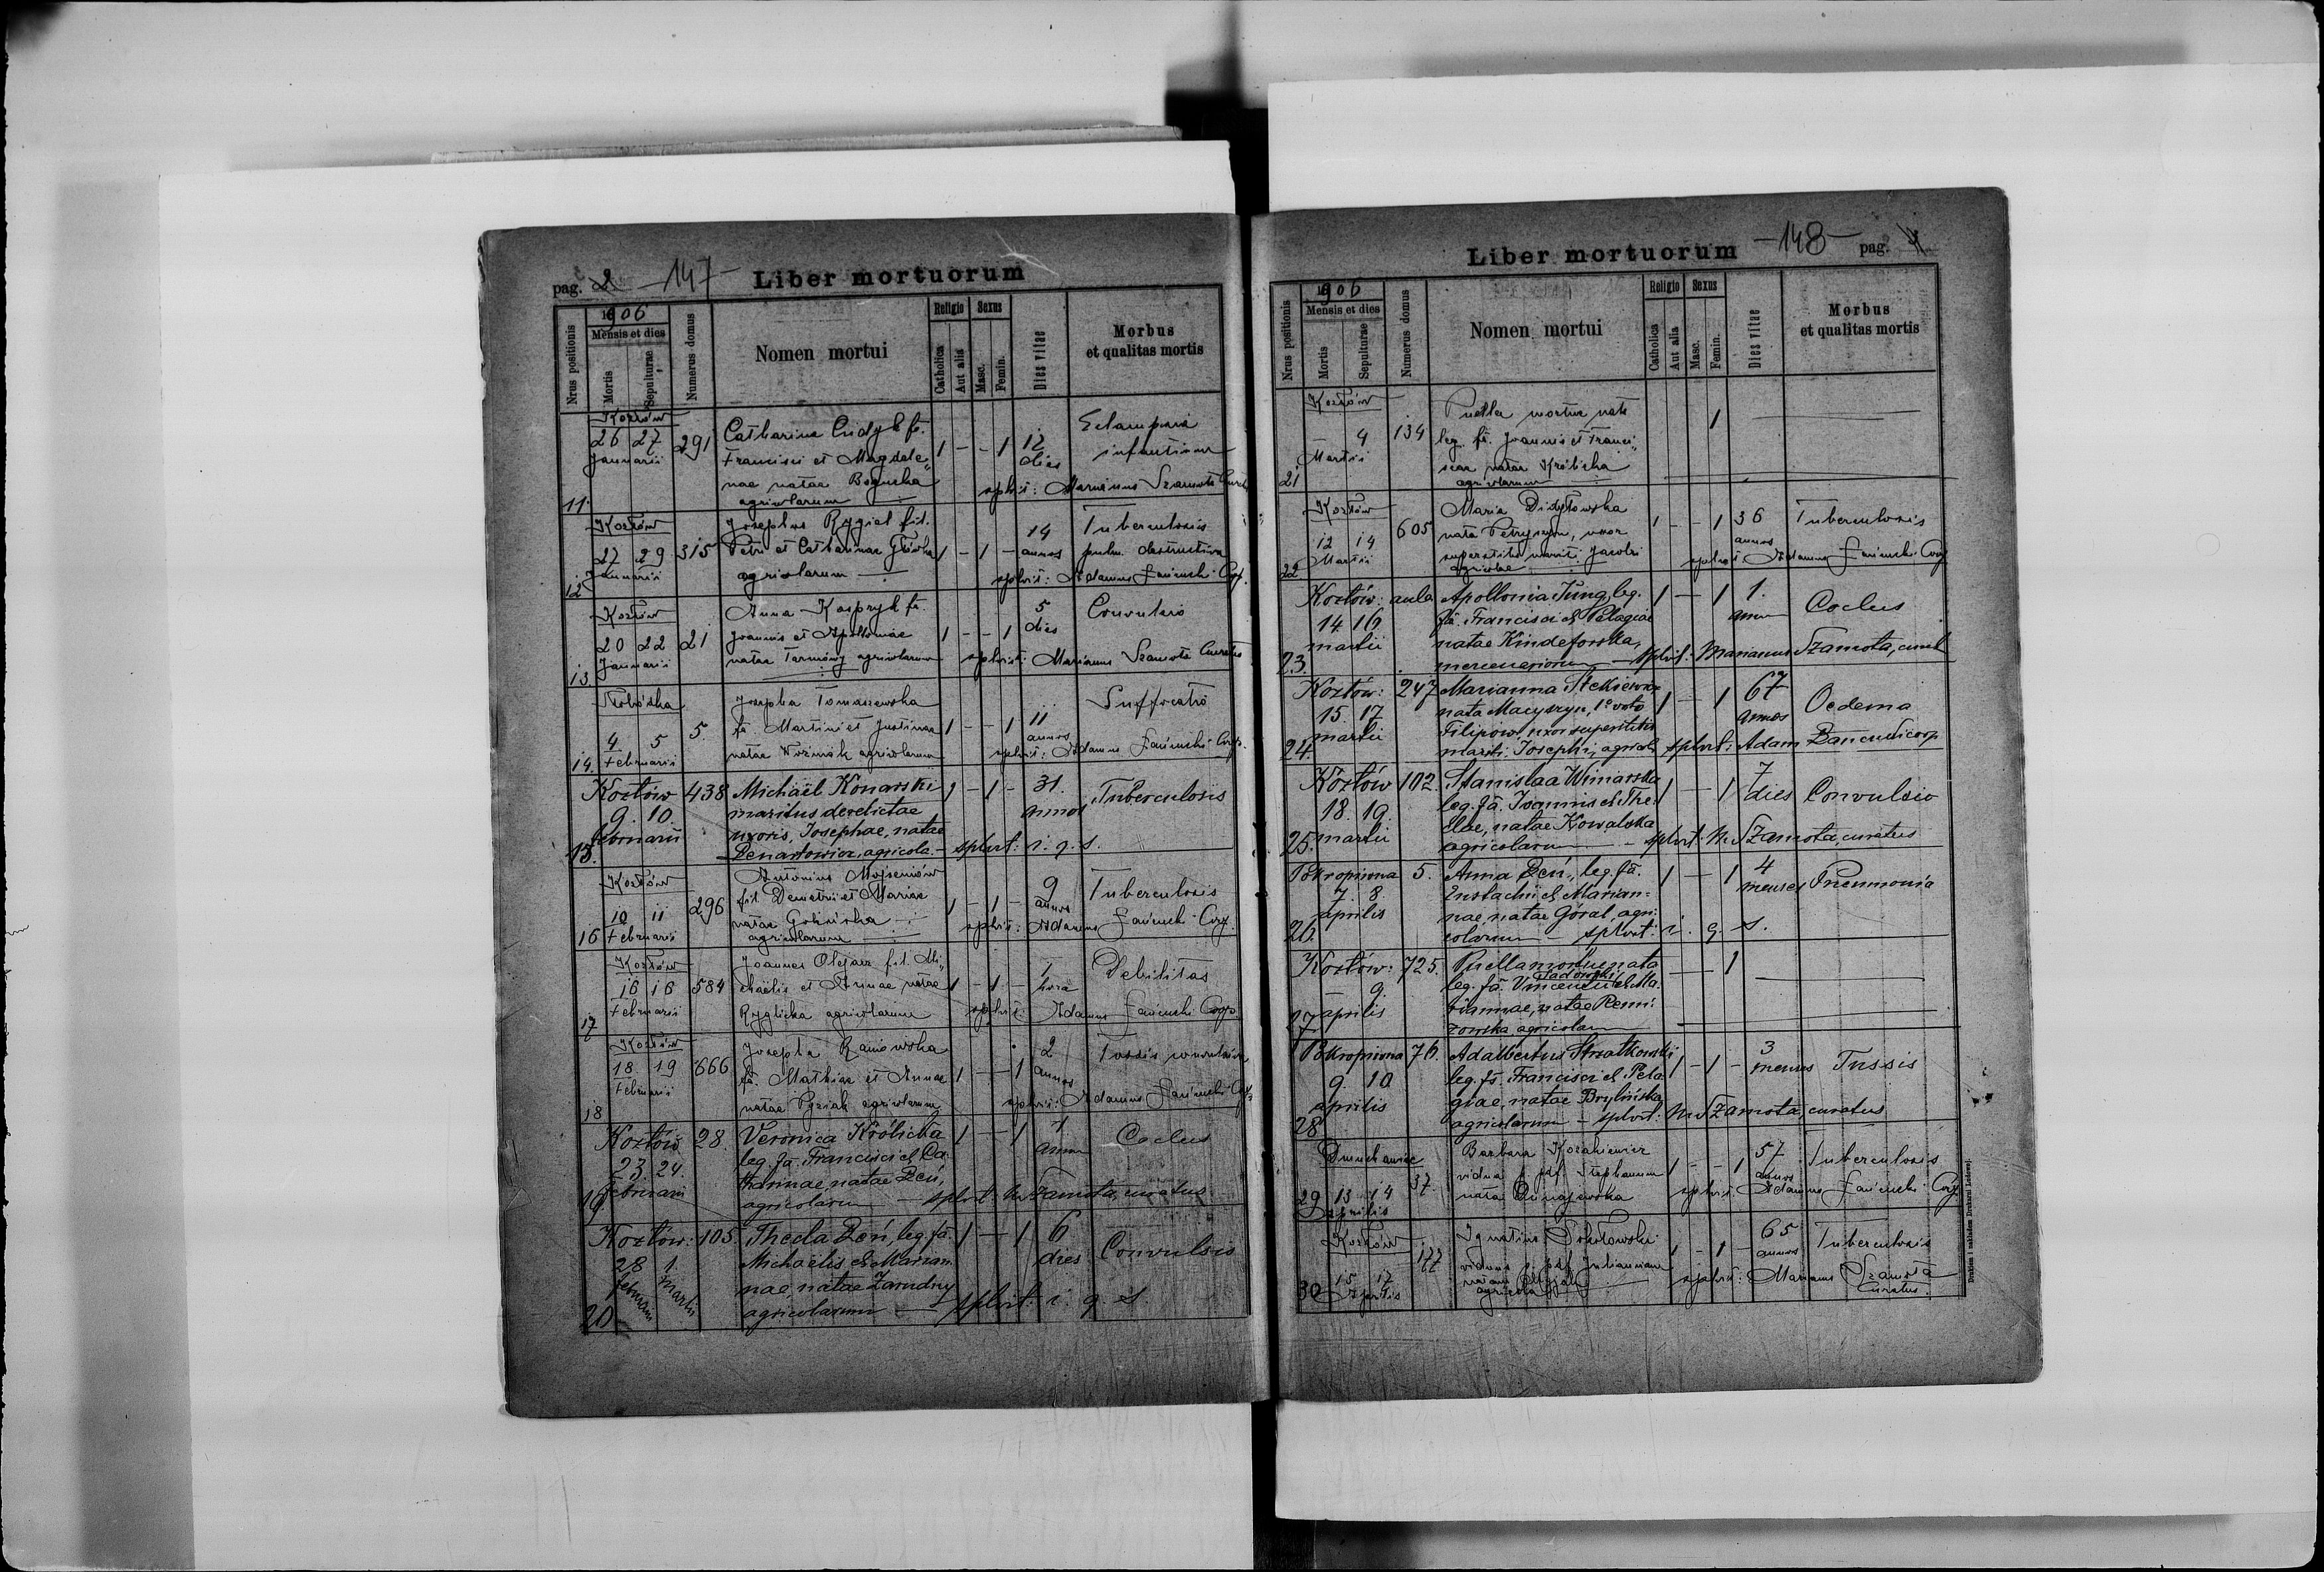 pag. 2 - 147 - Liber mortuorum
Nrus positionis
1906
Mensis et dies
Mortis
Sepulturae
Numerus domus
Nomen mortui
Religio
Catholica
Aut alia
Sexus
Masc.
Femin.
Dies vitae
Morbus
et qualitas mortis
Kozłów
26 27 291 Catharina Cudyk fa. 1 - - 1 12 Eclampsia
Januarii Francisci et Magdale„ dies infantium
nae natae Bogucka splvit: Marianus Szamota
11. agricolarum
Kozłów Josephus Rygiel fil. 14 Tuberculosis
27 29 315 Petri et Catharinae Głowka 1 - 1 - annos pulm. destructiva
Januarii agricolarum splvit: Adamus
12
Kozłów Anna Kaspryk fa. 5 Convulsio
20 22 21 Joannis et Apolloniae 1 - - 1 dies
Januarii natae Tarnowy agricolarum splvit: Marianus Szamota Curatus
13.
Josepha Tomaszewska Suffocatio
4 5 5. fa. Martini et Justinae 1 - - 1 11 annos
14. Februarii natae Woźniak agricolarum splvit: Adamus
Kozłów 438 Michaël Konarski 1 - 1 - 31. Tuberculosis
9. 10. maritus derelictae annos
februarii uxoris, Josephae, natae
15. Denartowicz, agricola. - splvit: i. q. s.
Kozłów Antonius Mojseniów 9 Tuberculosis
10 11 296 fil. Demetrii et Mariae 1 - 1 - annos
16 Februarii natae splvit: Adamus
agricolarum
Kozłów Joannes Olejarz fil. Mi„ 1 Debilitas
16 16 584 chaëlis et Annae natae 1 - 1 - hora
Februarii Ryglicka agricolarum splvit: Adamus
17
Kozłów Josepha 2 Tussis convulsiva
18 19 666 fa. Mathiae et Annae 1 - - 1 annos
Februarii natae Pyziak agricolarum splvit: Adamus
18
Kozłów 28. Veronica Królicka 1 - 1 1 Coclus
23. 24. leg. fa. Francisci et Ca annum
februarii tharinae, natae Deń,
19 agricolarum - splvit: M. Szamota, curatus
Kozłów: 105. Thecla Deń, leg. fa. 1 - 1 6 Convulsis
28 1. Michaëlis et Marian dies
februarii Martii nae, natae Zarudny
20 agricolarum - splvit: i. q. s.
Liber mortuorum - 148 - pag.
Nrus positionis
1906
Mensis et dies
Mortis
Sepulturae
Numerus domus
Nomen mortui
Religio
Catholica
Aut alia
Sexus
Masc.
Femin.
Dies vitae
Morbus
et qualitas mortis
Kozłów Puella mortue nata 1
- 4 134 leg. fa. Joannis et Franci„
Martii scae natae Królicka
21 agricolarum
Kozłów Maria Didyłowska 36 Tuberculosis
12 14 605 nata Petryszyn, uxor 1 - - 1 annos
Martii superstitis mariti Jacobi splvit: Adamus
22 agricolae
Kozłów: aula Apollonia Jung, leg. 1 - 1 1. Coclus
14. 16. fa. Francisci et Pelagiae annum
martii natae Kindeforska,
23. mercenariorum - splvit: Marianus Szamota, curat
Kozłów: 247 Marianna Steckiewicz 1 - 1 67 Oedema
15. 17 nata Macyszyn, 1º voto annos
martii Filipow, uxor superstitis
24. mariti Josephi, agricola splvit: Adam
Kozłów 102. Stanislaa Winiarska 1 - 1 7 Convulsio
18. 19. leg. fa. Joannis et The dies
martii clae, natae Kowalska
25. agricolarum - splvit: M. Szamota, curatus
Pokropiwna 5. Anna Deń, leg. fa. 1 - 1 4 Pneumonia
7. 8 Eustachii et Marian= menses
aprilis nae, natae Góral, agri=
26. colarum - splvit: i. q. s.
Kozłów: 725. Puella mortue nata - 1
- 9. leg. fa. Vincentii et Ma
aprilis riannae, natae
27 agricolarum
Pokropiwna 76. Adalbertus Strzałkowski 1 - 1 - 3 Tussis
9. 10 leg. fs. Francisci et Pela menses
aprilis giae, natae Brylińska,
28 agricolarum - splvit: M. Szamota, curatus
Barbara Kozakiewicz 57 Tuberculosis
37. vidua p. def. Stephanum 1 - - 1 annos
29 13 14 nata Dunajewska splvit: Adamus
Aprilis
Kozłów Ignatius Sokołowski 65 Tuberculosis
177 viduus p. def. Juliannam 1 - 1 - annos
15 17 natam splvit: Marianus Szamota
30 Aprilis agricola Curatus.
Drukiem i nakładem Drukarni Ludowej.